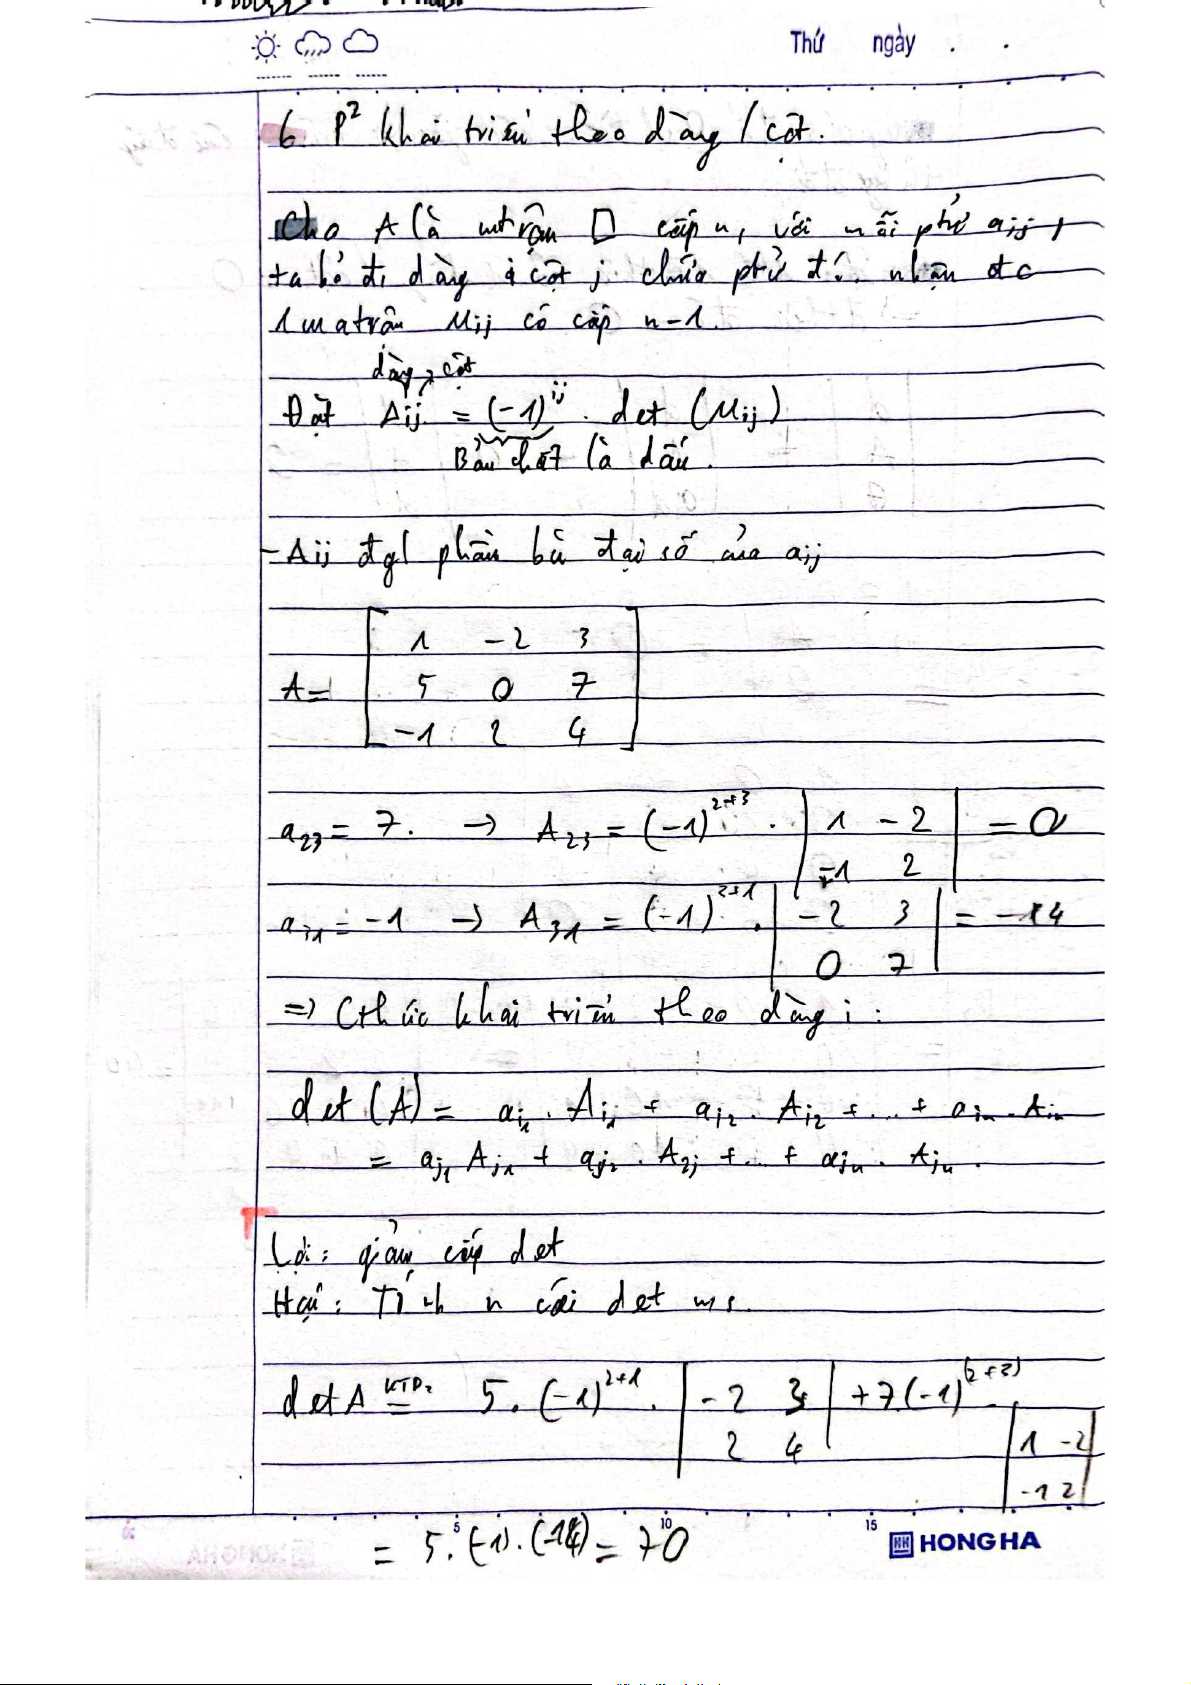 Thứ ngày . .
6. P² khai triển theo dòng / cột.
Cho A là mtrận □ cấp n, với mỗi phtử aij,
ta bỏ đi dòng i cột j chứa phtử đó. nhận đc
1 ma trận Mij có cấp n-1.
dòng, cột
Đặt Aij = (-1)^ij . det (Mij)
Bản chất là dấu.
- Aij đgl phần bù đại số của aij
1 -2 3
A = 5 0 7
-1 2 4
a23 = 7. → A23 = (-1)^2+3 . | 1 -2 | = 0
-1 2
a31 = -1 → A31 = (-1)^3+1 . | -2 3 | = -14
0 7
=> Cthức khai triển theo dòng i:
det (A) = ai1 . Ai1 + ai2 . Ai2 + ... + ain . Ain
= aj1 Aj1 + aj2 . A2j + ... + ajn . Ajn.
Lợi: giảm cấp det
Hại: Tính n cái det ms.
det A = 5 . (-1)^2+1 . | -2 3 | + 7(-1)^(2+3) .
2 4 | 1 -2 |
-1 2
5 10 15
= 5. (-1) . (-14) = 70
HONG HA